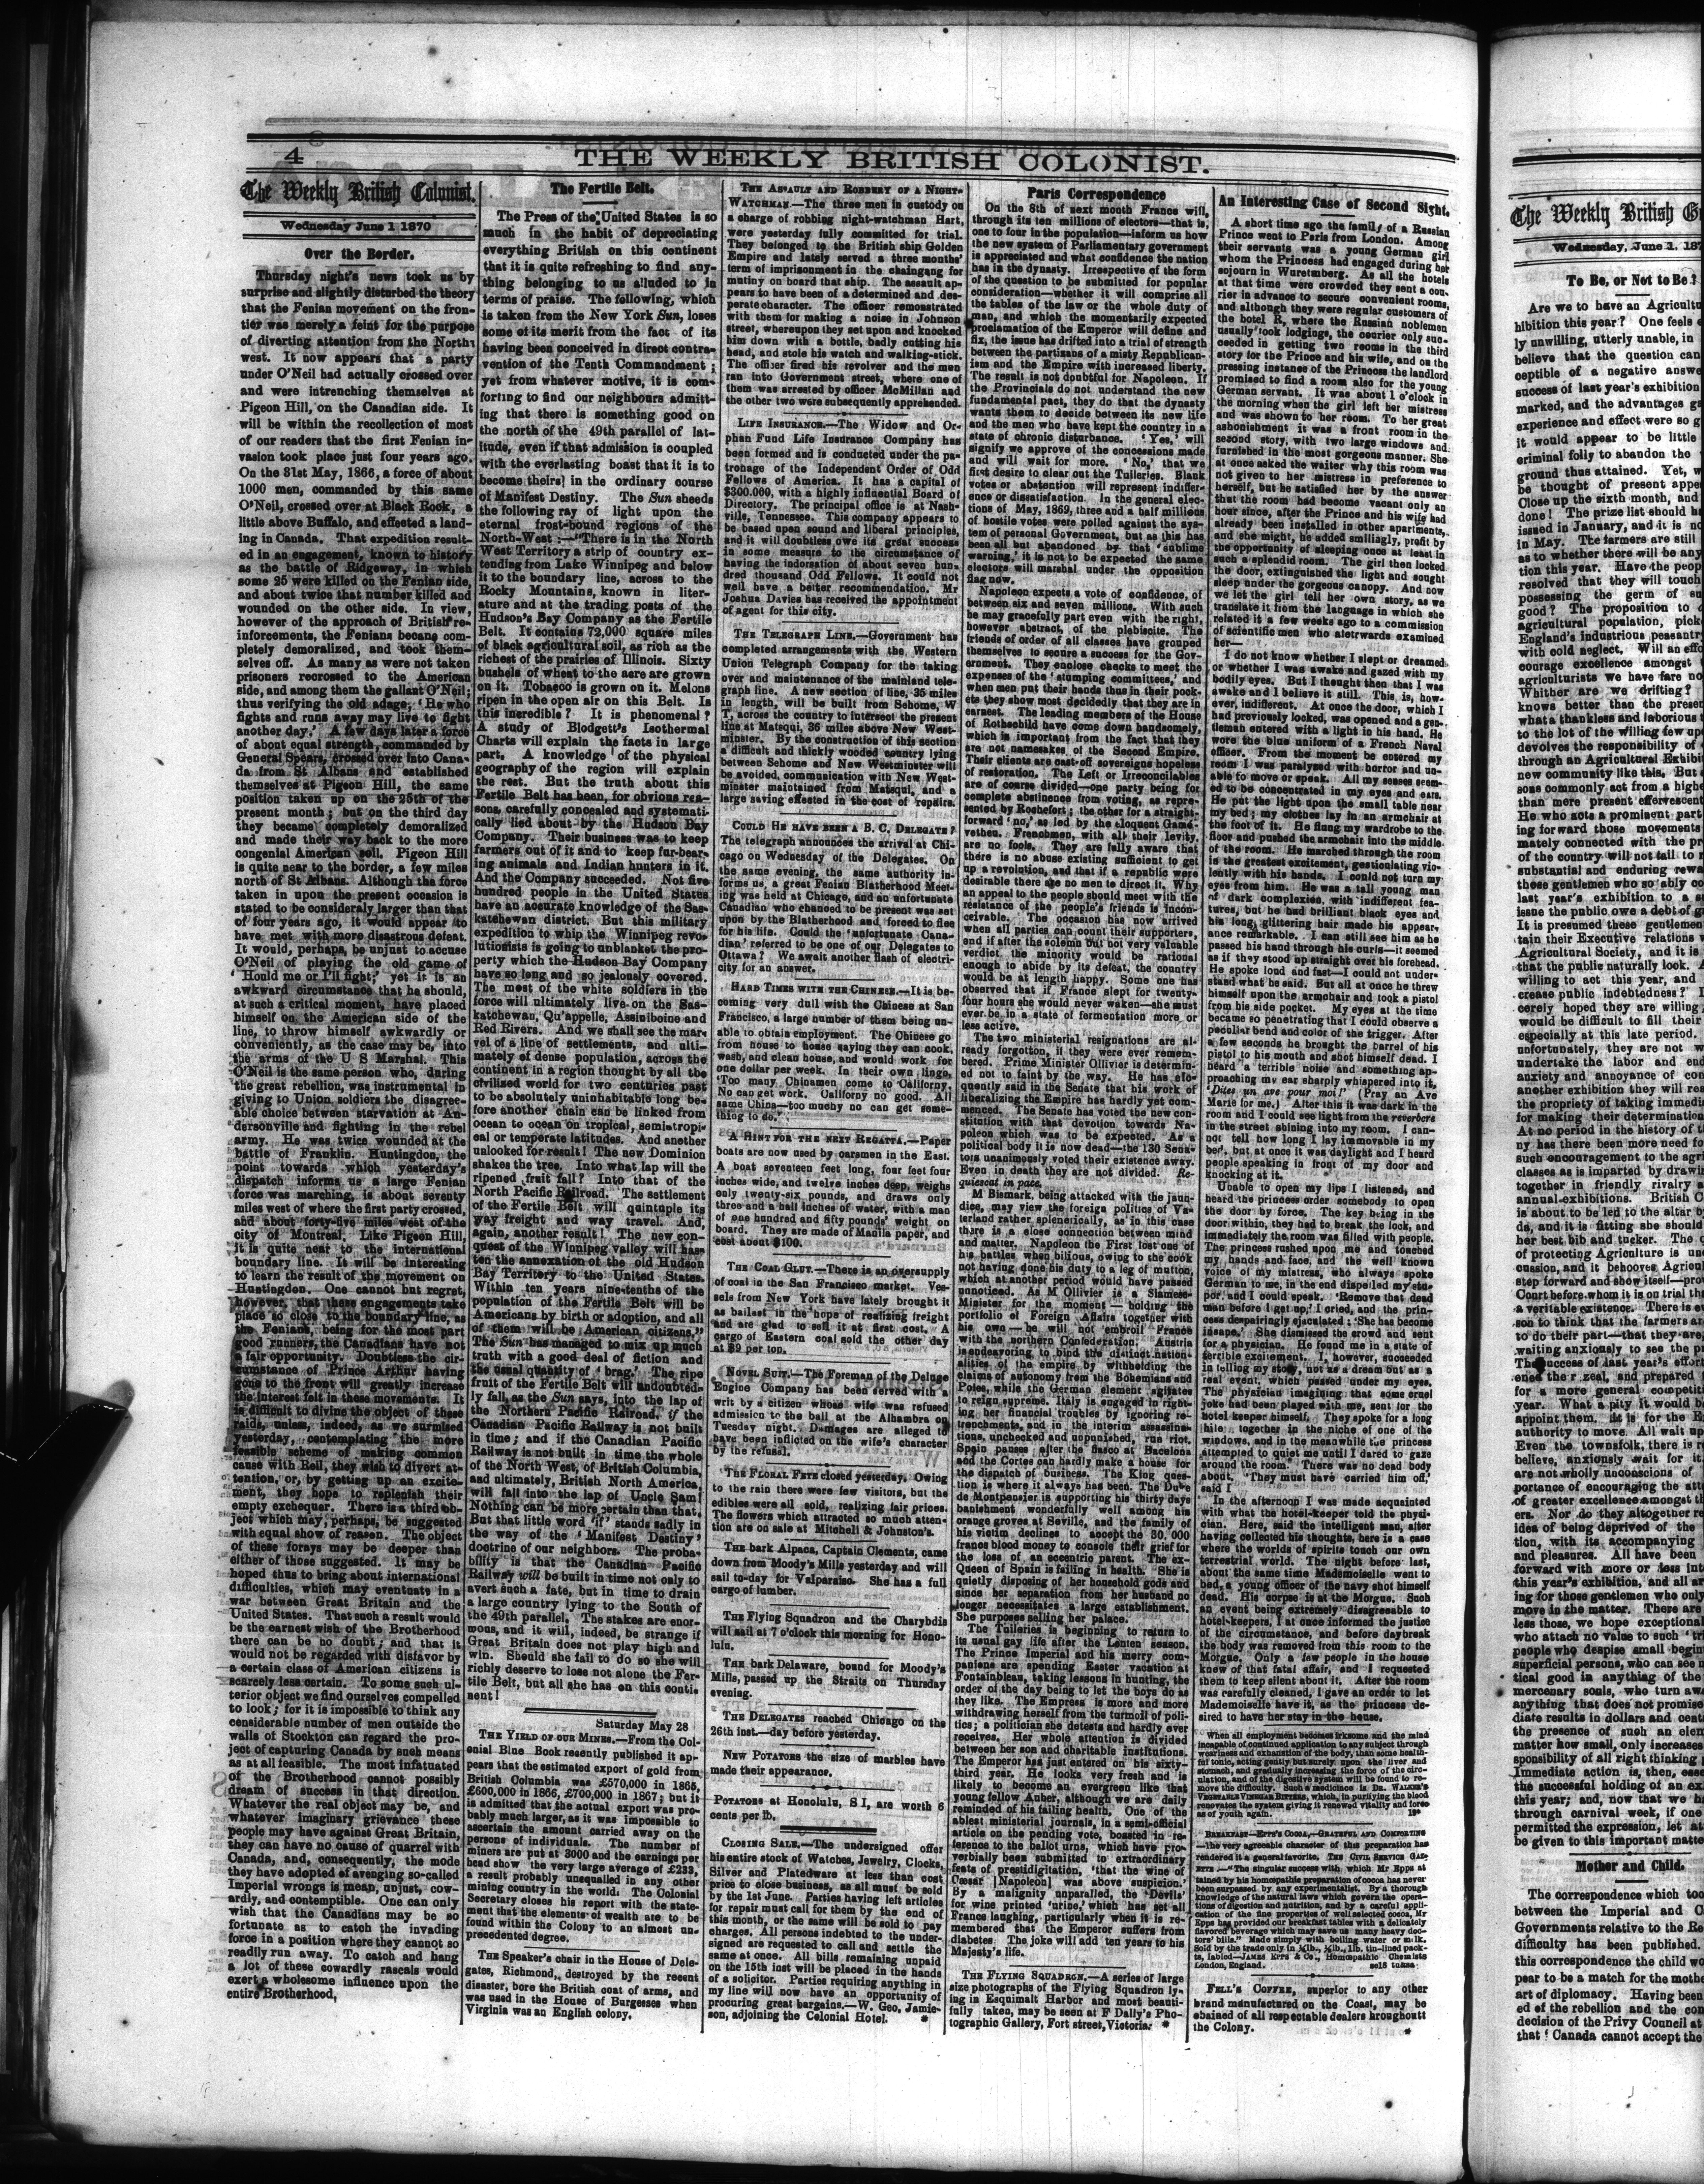 4
THE WEEKLY BRITISH COLONIST.
The Weekly British Colonist.
Wednesday June 1 1870
Over the Border.
Thursday night's news took us by
surprise and slightly disturbed the theory
that the Fenian movement on the fron-
tier was merely a feint for the purpose
of diverting attention from the North
west. It now appears that a party
under O'Neil had actually crossed over
and were intrenching themselves at
Pigeon Hill, on the Canadian side. It
will be within the recollection of most
of our readers that the first Fenian in-
vasion took place just four years ago.
On the 31st May, 1866, a force of about
1000 men, commanded by this same
O'Neil, crossed over at Black Rock, a
little above Buffalo, and effected a land-
ing in Canada. That expedition result-
ed in an engagement, known to history
as the battle of Ridgeway, in which
some 25 were killed on the Fenian side,
and about twice that number killed and
wounded on the other side. In view,
however of the approach of British re-
inforcements, the Fenians became com-
pletely demoralized, and took them-
selves off. As many as were not taken
prisoners recrossed to the American
side, and among them the gallant O'Neil;
thus verifying the old adage, 'He who
fights and runs away may live to fight
another day.' A few days later a force
of about equal strength, commanded by
General Spears, crossed over into Cana-
da from St Albans and established
themselves at Pigeon Hill, the same
position taken up on the 25th of the
present month; but on the third day
they became completely demoralized
and made their way back to the more
congenial American soil. Pigeon Hill
is quite near to the border, a few miles
north of St Albans. Although the force
taken in upon the present occasion is
stated to be consideraly larger than that
of four years ago, it would appear to
have met with more disastrous defeat.
It would, perhaps, be unjust to accuse
O'Neil of playing the old game of
' Hould me or I'll fight;' yet it is an
awkward circumstance that he should,
at such a critical moment, have placed
himself on the American side of the
line, to throw himself awkwardly or
conveniently, as the case may be, into
the arms of the U S Marshal. This
O'Neil is the same person who, during
the great rebellion, was instrumental in
giving to Union soldiers the disagree-
able choice between starvation at An-
dersonville and fighting in the rebel
army. He was twice wounded at the
battle of Franklin. Huntingdon, the
point towards which yesterday's
dispatch informs us a large Fenian
force was marching, is about seventy
miles west of where the first party crossed,
and about forty-five miles west of the
city of Montreal. Like Pigeon Hill,
it is quite near to the international
boundary line. It will be interesting
to learn the result of the movement on
Huntingdon. One cannot but regret,
however, that these engagements take
place so close to the boundary line, as
the Fenians, being for the most part
good runners, the Canadians have not
a fair opportunity. Doubtless the cir-
cumstance of Prince Arthur having
gone to the front will greatly increase
the interest felt in these movements. It
is difficult to divine the object of these
raids, unless, indeed, as we surmised
yesterday, contemplating the more
feasible scheme of making common
cause with Reil, they wish to divert at-
tention, or, by getting up an excite-
ment, they hope to replenish their
empty exchequer. There is a third ob-
ject which may, perhaps, be suggested
with equal show of reason. The object
of these forays may be deeper than
either of those suggested. It may be
hoped thus to bring about international
difficulties, which may eventuate in a
war between Great Britain and the
United States. That such a result would
be the earnest wish of the Brotherhood
there can be no doubt; and that it
would not be regarded with disfavor by
a certain class of American citizens is
scarcely less certain. To some such ul-
terior object we find ourselves compelled
to look; for it is impossible to think any
considerable number of men outside the
walls of Stockton can regard the pro-
ject of capturing Canada by such means
as at all feasible. The most infatuated
of the Brotherhood cannot possibly
dream of success in that direction.
Whatever the real object may be, and
whatever imaginary grievance these
people may have against Great Britain,
they can have no cause of quarrel with
Canada, and, consequently, the mode
they have adopted of avenging so-called
Imperial wrongs is mean, unjust, cow-
ardly, and contemptible. One can only
wish that the Canadians may be so
fortunate as to catch the invading
force in a position where they cannot so
readily run away. To catch and hang
a lot of these cowardly rascals would
exert a wholesome influence upon the
entire Brotherhood,
The Fertile Belt.
The Press of the United States is so
much in the habit of depreciating
everything British on this continent
that it is quite refreshing to find any-
thing belonging to us alluded to in
terms of praise. The following, which
is taken from the New York Sun, loses
some of its merit from the fact of its
having been conceived in direct contra-
vention of the Tenth Commandment;
yet from whatever motive, it is com-
forting to find our neighbours admitt-
ing that there is something good on
the north of the 49th parallel of lat-
itude, even if that admission is coupled
with the everlasting boast that it is to
become theirs] in the ordinary course
of Manifest Destiny. The Sun sheeds
the following ray of light upon the
eternal frost-bound regions of the
North-West :—"There is in the North
West Territory a strip of country ex-
tending from Lake Winnipeg and below
it to the boundary line, across to the
Rocky Mountains, known in liter-
ature and at the trading posts of the
Hudson's Bay Company as the Fertile
Belt. It contains 72,000 square miles
of black agricultural soil, as rich as the
richest of the prairies of Illinois. Sixty
bushels of wheat to the acre are grown
on it. Tobacco is grown on it. Melons
ripen in the open air on this Belt. Is
this incredible? It is phenomenal?
A study of Blodgett's Isothermal
Charts will explain the facts in large
part. A knowledge of the physical
geography of the region will explain
the rest. But the truth about this
Fertile Belt has been, for obvious rea-
sons, carefully concealed and systemati-
cally lied about by the Hudson Bay
Company. Their business was to keep
farmers out of it and to keep fur-bear-
ing animals and Indian hunters in it.
And the Company succeeded. Not five
hundred people in the United States
have an accurate knowledge of the Sas-
katchewan district. But this military
expedition to whip the Winnipeg revo-
lutionists is going to unblanket the pro-
perty which the Hudson Bay Company
have so long and so jealously covered.
The most of the white soldiers in the
force will ultimately live on the Sas-
katchewan, Qu'appelle, Assiniboine and
Red Rivers. And we shall see the mar-
vel of a line of settlements, and ulti-
mately of dense population, across the
continent in a region thought by all the
civilized world for two centuries past
to be absolutely uninhabitable long be-
fore another chain can be linked from
ocean to ocean on tropical, semi-tropi-
cal or temperate latitudes. And another
unlooked for result! The new Dominion
shakes the tree. Into what lap will the
ripened fruit fall? Into that of the
North Pacific Railroad. The settlement
of the Fertile Belt will quintuple its
way freight and way travel. And,
again, another result! The new con-
quest of the Winnipeg valley will has-
ten the annexation of the old Hudson
Bay Territory to the United States.
Within ten years nine-tenths of the
population of the Fertile Belt will be
Americans by birth or adoption, and all
of them will be American citizens."
The Sun has managed to mix up much
truth with a good deal of fiction and
the usual quantity of 'brag.' The ripe
fruit of the Fertile Belt will undoubted-
ly fall, as the Sun says, into the lap of
the Northern Pacific Railroad, if the
Canadian Pacific Railway is not built
in time; and if the Canadian Pacific
Railway is not built in time the whole
of the North West, of British Columbia,
and ultimately, British North America,
will fall into the lap of Uncle Sam!
Nothing can be more certain than that.
But that little word 'if' stands sadly in
the way of the 'Manifest Destiny'
doctrine of our neighbors. The proba-
bility is that the Canadian Pacific
Railway will be built in time not only to
avert such a fate, but in time to drain
a large country lying to the South of
the 49th parallel. The stakes are enor-
mous, and it will, indeed, be strange if
Great Britain does not play high and
win. Should she fail to do so she will
richly deserve to lose not alone the Fer-
tile Belt, but all she has on this conti-
nent!
Saturday May 28
THE YIELD OF OUR MINES.—From the Col-
onial Blue Book recently published it ap-
pears that the estimated export of gold from
British Columbia was £570,000 in 1865,
£600,000 in 1866, £700,000 in 1867; but it
is admitted that the actual export was pro-
bably much larger, as it was impossible to
ascertain the amount carried away on the
persons of individuals. The number of
miners are put at 3000 and the earnings per
head show the very large average of £233,
a result probably unequalled in any other
mining country in the world. The Colonial
Secretary closes his report with the state-
ment that the elements of wealth are to be
found within the Colony to an almost un-
precedented degree.
The Speaker's chair in the House of Dele-
gates, Richmond, destroyed by the recent
disaster, bore the British coat of arms, and
was used in the House of Burgesses when
Virginia was an English colony.
THE ASSAULT AND ROBBERY OF A NIGHT-
WATCHMAN.—The three men in custody on
a charge of robbing night-watchman Hart,
were yesterday fully committed for trial.
They belonged to the British ship Golden
Empire and lately served a three months'
term of imprisonment in the chaingang for
mutiny on board that ship. The assault ap-
pears to have been of a determined and des-
perate character. The officer remonstrated
with them for making a noise in Johnson
street, whereupon they set upon and knocked
him down with a bottle, badly cutting his
head, and stole his watch and walking-stick.
The officer fired his revolver and the men
ran into Government street, where one of
them was arrested by officer McMillan and
the other two were subsequently apprehended.
LIFE INSURANCE.—The Widow and Or-
phan Fund Life Insurance Company has
been formed and is conducted under the pa-
tronage of the Independent Order of Odd
Fellows of America. It has a capital of
$300.000, with a highly influential Board of
Directory. The principal office is at Nash-
ville, Tennessee. This company appears to
be based upon sound and liberal principles,
and it will doubtless owe its great success
in some measure to the circumstance of
having the indorsation of about seven hun-
dred thousand Odd Fellows. It could not
well have a better recommendation. Mr
Joshua Davies has received the appointment
of agent for this city.
THE TELEGRAPH LINE.—Government has
completed arrangements with the Western
Union Telegraph Company for the taking
over and maintenance of the mainland tele-
graph line. A new section of line, 35 miles
in length, will be built from Sehome, W
T, across the country to intersect the present
line at Matsqui, 36 miles above New West-
minster. By the construction of this section
a difficult and thickly wooded country lying
between Sehome and New Westminster will
be avoided, communication with New West-
minster maintained from Matsqui, and a
large saving effected in the cost of repairs.
COULD HE HAVE BEEN A B. C. DELEGATE?
The telegraph announces the arrival at Chi-
cago on Wednesday of the Delegates. On
the same evening, the same authority in-
forms us, a great Fenian Blatherhood Meet-
ing was held at Chicago, and an unfortunate
Canadian who chanced to be present was set
upon by the Blatherhood and forced to flee
for his life. Could the 'unfortunate Cana-
dian' referred to be one of our Delegates to
Ottawa? We await another flash of electri-
city for an answer.
HARD TIMES WITH THE CHINESE.—It is be-
coming very dull with the Chinese at San
Francisco, a large number of them being un-
able to obtain employment. The Chinese go
from house to house saying they can cook,
wash, and clean house, and would work for
one dollar per week. In their own lingo,
'Too many Chinamen come to Californy.
No can get work. Californy no good. All
same China—too muchy no can get some-
thing to do.'
A HINT FOR THE NEXT REGATTA.—Paper
boats are now used by oarsmen in the East.
A boat seventeen feet long, four feet four
inches wide, and twelve inches deep, weighs
only twenty-six pounds, and draws only
three and a half inches of water, with a man
of one hundred and fifty pounds' weight on
board. They are made of Manila paper, and
cost about $100.
THE COAL GLUT.—There is an oversupply
of coal in the San Francisco market. Ves-
sels from New York have lately brought it
as ballast in the hope of realizing freight
and are glad to sell it at first cost. A
cargo of Eastern coal sold the other day
at $9 per ton.
NOVEL SUIT.—The Foreman of the Deluge
Engine Company has been served with a
writ by a citizen whose wife was refused
admission to the ball at the Alhambra on
Tuesday night. Damages are alleged to
have been inflicted on the wife's character
by the refusal.
THE FLORAL FETE closed yesterday. Owing
to the rain there were few visitors, but the
edibles were all sold, realizing fair prices.
The flowers which attracted so much atten-
tion are on sale at Mitchell & Johnston's.
THE bark Alpaca, Captain Clements, came
down from Moody's Mills yesterday and will
sail to-day for Valparaiso. She has a full
cargo of lumber.
THE Flying Squadron and the Charybdis
will sail at 7 o'clock this morning for Hono-
lulu.
THE bark Delaware, bound for Moody's
Mills, passed up the Straits on Thursday
evening.
THE DELEGATES reached Chicago on the
26th inst.—day before yesterday.
NEW POTATOES the size of marbles have
made their appearance.
POTATOES at Honolulu, S I, are worth 6
cents per lb.
CLOSING SALE.—The undersigned offer
his entire stock of Watches, Jewelry, Clocks,
Silver and Platedware at less than cost
price to close business, as all must be sold
by the 1st June. Parties having left articles
for repair must call for them by the end of
this month, or the same will be sold to pay
charges. All persons indebted to the under-
signed are requested to call and settle the
same at once. All bills remaining unpaid
on the 15th inst will be placed in the hands
of a solicitor. Parties requiring anything in
my line will now have an opportunity of
procuring great bargains.—W. Geo. Jamie-
son, adjoining the Colonial Hotel. *
Paris Correspondence
On the 8th of next month France will,
through its ten millions of electors—that is,
one to four in the population—inform us how
the new system of Parliamentary government
is appreciated and what confidence the nation
has in the dynasty. Irrespective of the form
of the question to be submitted for popular
consideration—whether it will comprise all
the tables of the law or the whole duty of
man, and which the momentarily expected
proclamation of the Emperor will define and
fix, the issue has drifted into a trial of strength
between the partizans of a misty Republican-
ism and the Empire with increased liberty.
The result is not doubtful for Napoleon. If
the Provincials do not understand the new
fundamental pact, they do that the dynasty
wants them to decide between its new life
and the men who have kept the country in a
state of chronic disturbance. 'Yes,' will
signify we approve of the concessions made
and will wait for more. 'No,' that we
first desire to clear out the Tuileries. Blank
votes or abstention will represent indiffer-
ence or dissatisfaction. In the general elec-
tions of May, 1869, three and a half millions
of hostile votes were polled against the sys-
tem of personal Government, but as this has
been all but abandoned by that 'sublime
warning,' it is not to be expected the same
electors will marshal under the opposition
flag now.
Napoleon expects a vote of confidence, of
between six and seven millions. With such
he may gracefully part even with the right,
however abstract, of the plebiscite. The
friends of order of all classes have grouped
themselves to secure a success for the Gov-
ernment. They enclose checks to meet the
expenses of the 'stumping committees,' and
when men put their hands thus in their pock-
ets they show most decidedly that they are in
earnest. The leading members of the House
of Rothschild have come down handsomely,
which is important from the fact that they
are not namesakes of the Second Empire.
Their clients are cast-off sovereigns hopeless
of restoration. The Left or Irreconcilables
are of course divided—one party being for
complete abstinence from voting, as repre-
sented by Rochefort; the other for a straight-
forward 'no,' as led by the eloquent Gam-
vetten. Frenchmen, with all their levity,
are no fools. They are fully aware that
there is no abuse existing sufficient to get
up a revolution, and that if a republic were
desirable there are no men to direct it. Why
an appeal to the people should meet with the
resistance of the people's friends is incon-
ceivable. The occasion has now arrived
when all parties can count their supporters,
and if after the solemn but not very valuable
verdict, the minority would be rational
enough to abide by its defeat, the country
would be at length happy. Some one has
observed that if France slept for twenty-
four hours she would never waken—she must
ever be in a state of fermentation more or
less active.
The two ministerial resignations are al-
ready forgotten, if they were ever remem-
bered. Prime Minister Ollivier is determin-
ed not to faint by the way. He has elo-
quently said in the Senate that his work of
liberalizing the Empire has hardly yet com-
menced. The Senate has voted the new con-
stitution with that devotion towards Na-
poleon which was to be expected. As a
political body it is now dead—the 130 Sena-
tors unanimously voted their existence away.
Even in death they are not divided. Re-
quiescat in pace.
M Bismark, being attacked with the jaun-
dice, may view the foreign politics of Va-
terland rather splenerically, as in this case
there is a close connection between mind
and matter. Napoleon the First lost one of
his battles when bilious, owing to the cook
not having done his duty to a leg of mutton,
which at another period would have passed
unnoticed. As M Ollivier is a Siamese-
Minister for the moment — holding the
portfolio of Foreign Affairs together with
his own—he will not 'embroil' France
with the northern Confederation. Austria
is endeavoring to bind the distinct nation-
alities of the empire by withholding the
claims of autonomy from the Bohemians and
Poles, while the German element agitates
to reign supreme. Italy is engaged in right-
ing her financial troubles by ignoring re-
trenchments, and in the interim assassina-
tions, unchecked and unpunished, run riot.
Spain pauses after the fiasco at Bacelona
and the Cortes can hardly make a house for
the dispatch of business. The King ques-
tion is where it always has been. The Duke
de Montpensier is supporting his thirty days
banishment wonderfully well among his
orange groves at Seville, and the family of
his victim declines to accept the 30,000
francs blood money to console their grief for
the loss of an eccentric parent. The ex-
Queen of Spain is failing in health. She is
quietly disposing of her household gods and
since her separation from her husband no
longer necessitates a large establishment.
She purposes selling her palace.
The Tuileries is beginning to return to
its usual gay life after the Lenten season.
The Prince Imperial and his merry com-
panions are spending Easter vacation at
Fontainbleau, taking lessons in hunting, the
order of the day being to let the boys do as
they like. The Empress is more and more
withdrawing herself from the turmoil of poli-
tics; a politician she detests and hardly ever
receives. Her whole attention is divided
between her son and charitable institutions.
The Emperor has just entered on his sixty-
third year. He looks very fresh and is
likely to become an evergreen like that
young fellow Auber, although we are daily
reminded of his failing health. One of the
ablest ministerial journals, in a semi-official
article on the pending vote, boasted in re-
ference to the ballot urns, which have pro-
verbially been submitted to extraordinary
feats of presidigitation, 'that the wine of
Cæsar [Napoleon] was above suspicion.'
By a malignity unparalled, the 'Devils'
for wine printed 'urine,' which has set all
France laughing, particularly when it is re-
membered that the Emperor suffers from
diabetes. The joke will add ten years to his
Majesty's life.
THE FLYING SQUADRON.—A series of large
size photographs of the Flying Squadron ly-
ing in Esquimalt Harbor and most beauti-
fully taken, may be seen at F Dally's Pho-
tographic Gallery, Fort street, Victoria. *
An Interesting Case of Second Sight.
A short time ago the family of a Russian
Prince went to Paris from London. Among
their servants was a young German girl
whom the Princess had engaged during her
sojourn in Wuretmberg. As all the hotels
at that time were crowded they sent a cou-
rier in advance to secure convenient rooms,
and although they were regular customers of
the hotel R, where the Russian noblemen
usually took lodgings, the courier only suc-
ceeded in getting two rooms in the third
story for the Prince and his wife, and on the
pressing instance of the Princess the landlord
promised to find a room also for the young
German servant. It was about 1 o'clock in
the morning when the girl left her mistress
and was shown to her room. To her great
ashonishment it was a front room in the
second story, with two large windows and
furnished in the most gorgeous manner. She
at once asked the waiter why this room was
not given to her mistress in preference to
herself, but he satisfied her by the answer
that the room had become vacant only an
hour since, after the Prince and his wife had
already been installed in other apartments,
and she might, he added smilingly, profit by
the opportunity of sleeping once at least in
such a splendid room. The girl then locked
the door, extinguished the light and sought
sleep under the gorgeous canopy. And now
we let the girl tell her own story, as we
translate it from the language in which she
related it a few weeks ago to a commission
of scientific men who aletrwards examined
her—
I do not know whether I slept or dreamed
or whether I was awake and gazed with my
bodily eyes. But I thought then that I was
awake and I believe it still. This is, how-
ever, indifferent. At once the door, which I
had previously locked, was opened and a gen-
tleman entered with a light in his hand. He
wore the blue uniform of a French Naval
officer. From the moment he entered my
room I was paralysed with horror and un-
able to move or speak. All my senses seem-
ed to be concentrated in my eyes and ears.
He put the light upon the small table near
my bed; my clothes lay in an armchair at
the foot of it. He flung my wardrobe to the
floor and pushed the armchair into the middle
of the room. He marched through the room
in the greatest excitement, gesticulating vio-
lently with his hands. I could not turn my
eyes from him. He was a tall young man
of dark complexion, with indifferent fea-
tures, but he had brilliant black eyes and
his long, glittering hair made his appear-
ance remarkable. I can still see him as he
passed his hand through his curls—it seemed
as if they stood up straight over his forehead.
He spoke loud and fast—I could not under-
stand what he said. But all at once he threw
himself upon the armchair and took a pistol
from his side pocket. My eyes at the time
became so penetrating that I could observe a
peculiar bend and color of the trigger. After
a few seconds he brought the barrel of his
pistol to his mouth and shot himself dead. I
heard a terrible noise and something ap-
proaching my ear sharply whispered into it,
'Dites un ave pour moi!' (Pray an Ave
Marie for me.) After this it was dark in the
room and I could see light from the reverbere
in the street shining into my room. I can-
not tell how long I lay immovable in my
bed, but at once it was daylight and I heard
people speaking in front of my door and
knocking at it.
Unable to open my lips I listened, and
heard the princess order somebody to open
the door by force. The key being in the
door within, they had to break the lock, and
immediately the room was filled with people.
The princess rushed upon me and touched
my hands and face, and the well known
voice of my mistress, who always spoke
German to me, in the end dispelled my stu-
por, and I could speak. 'Remove that dead
man before I get up,' I cried, and the prin-
cess despairingly ejaculated: 'She has become
insane.' She dismissed the crowd and sent
for a physician. He found me in a state of
terrible excitement. I, however, succeeded
in telling my story, not as a dream but as a
real event, which passed under my eyes.
The physician imagining that some cruel
joke had been played with me, sent for the
hotel keeper himself. They spoke for a long
while together in the niche of one of the
windows, and in the meanwhile the princess
attempted to quiet me until I dared to gaze
around the room. There was no dead body
about. 'They must have carried him off,'
said I
In the afternoon I was made acquainted
with what the hotel-keeper told the physi-
cian. Here, said the intelligent man, after
having collected his thoughts, here is a case
where the worlds of spirits touch our own
terrestrial world. The night before last,
about the same time Mademoiselle went to
bed, a young officer of the navy shot himself
dead. His corpse is at the Morgue. Such
an event being extremely disagreeable to
hotel-keepers, I at once informed the justice
of the circumstance, and before daybreak
the body was removed from this room to the
Morgue. Only a few people in the house
knew of that fatal affair, and I requested
them to keep silent about it. After the room
was carefully cleaned, I gave an order to let
Mademoiselle have it, as the princess de-
sired to have her stay in the house.
When all employment becomes irksome and the mind
incapable of continued application to any subject through
weariness and exhaustion of the body, than some health-
ful tonic, acting gently but surely upon the liver and
stomach, and gradually increasing the force of the circu-
lation, and of the digestive system will be found to re-
move the difficulty. Such a medicines is DR. WALKER'S
VEGETABLE VINEGAR BITTERS, which, in purifying the blood
renovates the system giving it renewed vitality and force
as of youth again. 19*
BREAKFAST—EPPS'S COCOA,—GRATEFUL AND COMFORTING
—The very agreeable character of this preparation has
rendered it a general favorite. THE CIVIL SERVICE GAZ-
ETTE —"The singular success with which Mr Epps at
tained by his homœpathic preparation of cocoa has never
been surpassed by any experimentalist. By a thorough
knowledge of the natural laws which govern the opera-
tions of digestion and nutrition, and by a careful appli-
cation of the fine properties of well selected cocoa, Mr
Epps has provided our breakfast tables with a delicately
flavored beverage which may save us many heavy doc-
tors' bills." Made simply with boiling water or milk.
Sold by the trade only in ¼lb., ½lb., 1lb. tin-lined pack-
ts, labled—JAMES EPPS & Co., Homœopathic Chemists
London, England.
FELL'S COFFEE, superior to any other
brand manufactured on the Coast, may be
obained of all respectable dealers hroughoutt
the Colony. *
The Weekly British C
Wednesday, June 1. 187
To Be, or Not to Be?
Are we to have an Agricultu
hibition this year? One feels
ly unwilling, utterly unable, in
believe that the question can
ceptible of a negative answe
success of last year's exhibition
marked, and the advantages ga
experience and effect were so g
it would appear to be little
criminal folly to abandon the
ground thus attained. Yet, w
be thought of present appe
Close up the sixth month, and
done! The prize list should h
issued in January, and it is no
in May. The farmers are still
as to whether there will be any
tion this year. Have the peop
resolved that they will touch
possessing the germ of su
good? The proposition to
agricultural population, pick
England's industrious peasantry
with cold neglect. Will an effo
courage excellence amongst
agriculturists we have fare no
Whither are we drifting?
knows better than the presen
what a thankless and laborious
to the lot of the willing few up
devolves the responsibility of
through an Agricultural Exhibi
new community like this. But
sons commonly act from a highe
than mere present effervescent
He who acts a prominent part
ing forward those movements
mately connected with the pr
of the country will not fail to r
substantial and enduring rewa
these gentlemen who so ably co
last year's exhibition to a su
issue the public owe a debt of gr
It is presumed these gentlemen
tain their Executive relations
Agricultural Society, and it is
that the public naturally look.
willing to act this year, and
crease public indebtedness? I
cerely hoped they are willing
would be difficult to fill their
especially at this late period.
unfortunately, they are not w
undertake the labor and end
anxiety and annoyance of con
another exhibition they will rea
the propriety of taking immedi
for making their determination
At no period in the history of th
ny has there been more need fo
such encouragement to the agri
classes as is imparted by drawin
together in friendly rivalry a
annual exhibitions. British C
is about to be led to the altar b
da, and it is fitting she should
her best bib and tucker. The c
of protecting Agriculture is un
cussion, and it behooves Agricul
step forward and show itself—pro
Court before whom it is on trial th
a veritable existence. There is e
son to think that the farmers ar
to do their part—that they are
waiting anxiously to see the p
The success of last year's effort
ened their zeal, and prepared
for a more general competit
year. What a pity it would b
appoint them. It is for the E
authority to move. All wait up
Even the townsfolk, there is r
believe, anxiously wait for it.
are not wholly unconscious of
portance of encouraging the att
of greater excellence amongst th
ers. Nor do they altogether re
idea of being deprived of the
tion, with its accompanying
and pleasures. All have been
forward with more or less int
this year's exhibition, and all ar
ing for those gentlemen who only
move in the matter. There are
less those, we hope exceptional
who attach no value to such 'tri
people who despise small begin
superficial persons, who can see n
tical good in anything of the
mercenary souls, who turn aw
anything that does not promise
diate results in dollars and cent
the presence of such an elem
matter how small, only increases
sponsibility of all right thinking
Immediate action is, then, esse
the successful holding of an ex
this year; and, now that we ha
through carnival week, if one
permitted the expression, let at
be given to this important matte
Mother and Child.
The correspondence which too
between the Imperial and C
Governments relative to the Re
difficulty has been published.
this correspondence the child wo
pear to be a match for the moth
art of diplomacy. Having been
ed of the rebellion and the con
decision of the Privy Council at
that 'Canada cannot accept the